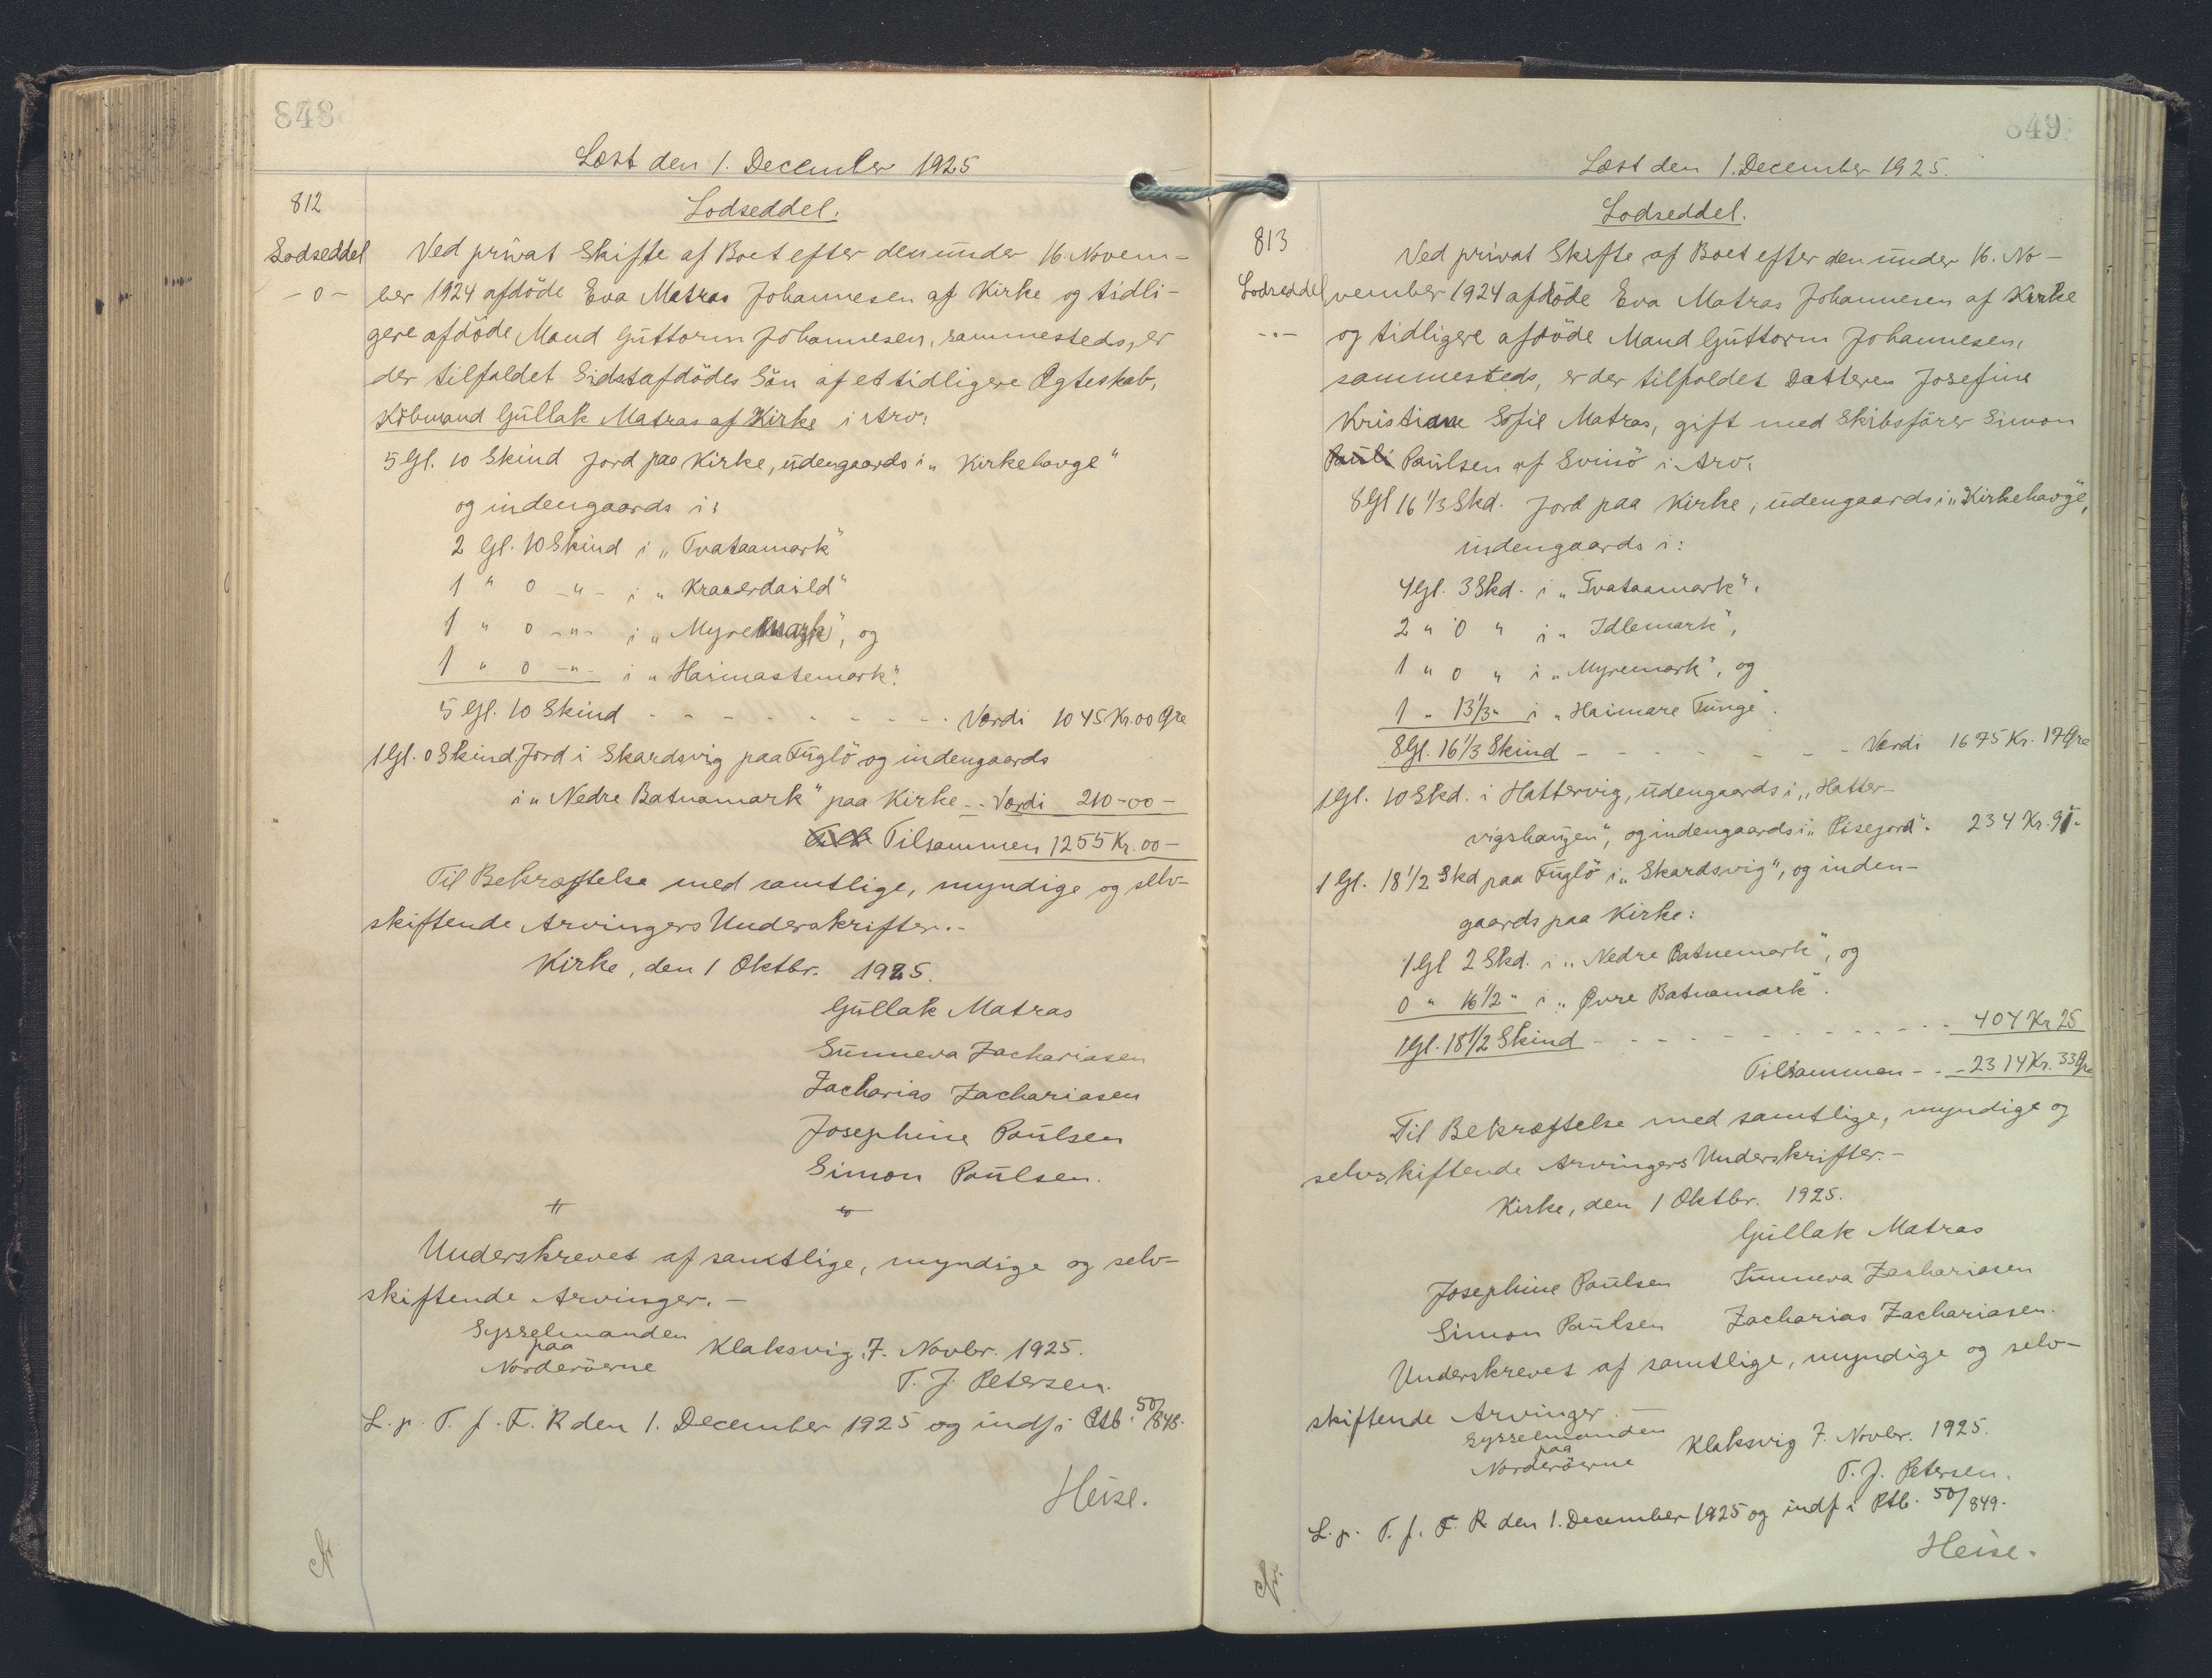 848
Læst den 1. December 1925
812
Lodseddel.
Lodseddel
- o -
Ved privat Skifte af Boet efter den under 16. Novem-
ber 1924 afdöde Eva Matras Johannesen af Kirke og tidli-
gere afdöde Mand Guttorm Johannesen, sammesteds, er
der tilfaldet Sidstafdödes Sön af et tidligere Ægteskab,
Köbmand Gullak Matras af Kirke i Arv:
5 Gl. 10 Skind Jord paa Kirke, udengaards i „Kirkehavge"
og indengaards i:
2 Gl. 10 Skind i „Tvataamark"
1 " 0 -"- i „Kraaerdaild"
1 " 0 -"- i „Myremark", og
1 " 0 -"- i „Haimastemark".
5 Gl. 10 Skind - - - - - - - - - Værdi 1045 Kr. 00 Øre
1 Gl. 0 Skind Jord i Skardsvig paa Fuglö og indengaards
i „Nedre Batnamark" paa Kirke - - Værdi 210-00-
Tilsammen 1255 Kr. 00-
Til Bekræftelse med samtlige, myndige og selv-
skiftende Arvingers Underskrifter.-
Kirke, den 1 Oktbr. 1925.
Gullak Matras
Sunneva Zachariasen
Zacharias Zachariasen
Josephine Poulsen
Simon Poulsen.
Underskrevet af samtlige, myndige og selv-
skiftende Arvinger. -
Sysselmanden
paa
Norderöerne
Klaksvig, 7. Novbr. 1925.
T. J. Petersen.
L. p. T. f. F. R den 1. December 1925 og indf i Ptb. 50/848.
Heise.
cfr.
849
Læst den 1. December 1925.
Lodseddel.
813
Lodseddel
- . -
Ved privat Skifte af Boet efter den under 16. No-
vember 1924 afdöde Eva Matras Johannesen af Kirke
og tidligere afdöde Mand Guttorm Johannesen,
sammesteds, er der tilfaldet Datteren Josefine
Kristiane Sofie Matras, gift med Skibsförer Simon
Pauli Poulsen af Svinö i Arv:
8 Gl 16 1/3 Skd. Jord paa Kirke, udengaards i „Kirkehavge",
indengaards i:
4 Gl. 3 Skd. i „Tvataamark".
2 " 0 " i „Idlemark",
1 " 0 " i „Myremark", og
1 " 13 1/3 " i „Haimare Tunge".
8 Gl. 16 1/3 Skind - - - - - - - Værdi 1675 Kr. 17 Øre
1 Gl. 10 Skd. i Hattervig, udengaards i „Hatter-
vigshaugen", og indengaards i „Pisejord". 234 Kr. 91-
1 Gl. 18 1/2 Skd paa Fuglö i „Skardsvig", og inden-
gaards paa Kirke:
1 Gl 2 Skd. i „Nedre Batnemark", og
0 " 16 1/2 " i „Øvre Batnamark".
1 Gl. 18 1/2 Skind - - - - - - - - - - 404 Kr 25
Tilsammen - - - 2314 Kr. 33 Øre
Til Bekræftelse med samtlige, myndige og
selvskiftende Arvingers Underskrifter.-
Kirke, den 1 Oktbr. 1925.
Gullak Matras
Josephine Poulsen Sunneva Zachariasen
Simon Poulsen Zacharias Zachariasen.
Underskrevet af samtlige, myndige og selv-
skiftende Arvinger. -
Sysselmanden
paa
Norderöerne
Klaksvig 7. Novbr. 1925.
T. J. Petersen.
L. p. T. f. F. R den 1. December 1925 og indf i Ptb. 50/849.
Heise.
cfr.